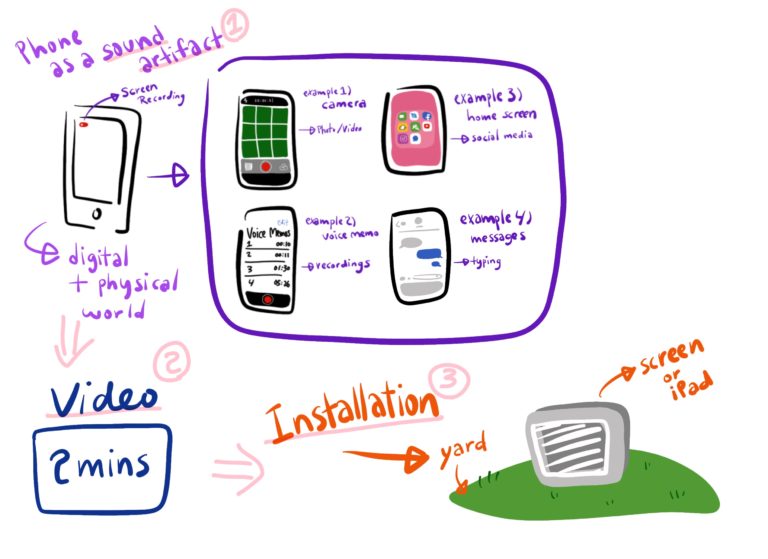 Phone
as a sound
artifact
1
screen
Recording
digital
+ physical
world
example 1)
camera
Photo/Video
example 3)
home screen
social media
example 2)
voice memo
recordings
Voice Memos
1 00:10
2 00:11
3 01:30
4 05:26
example 4)
messages
typing
2
Video
2 mins
3
Installation
yard
screen
or
iPad